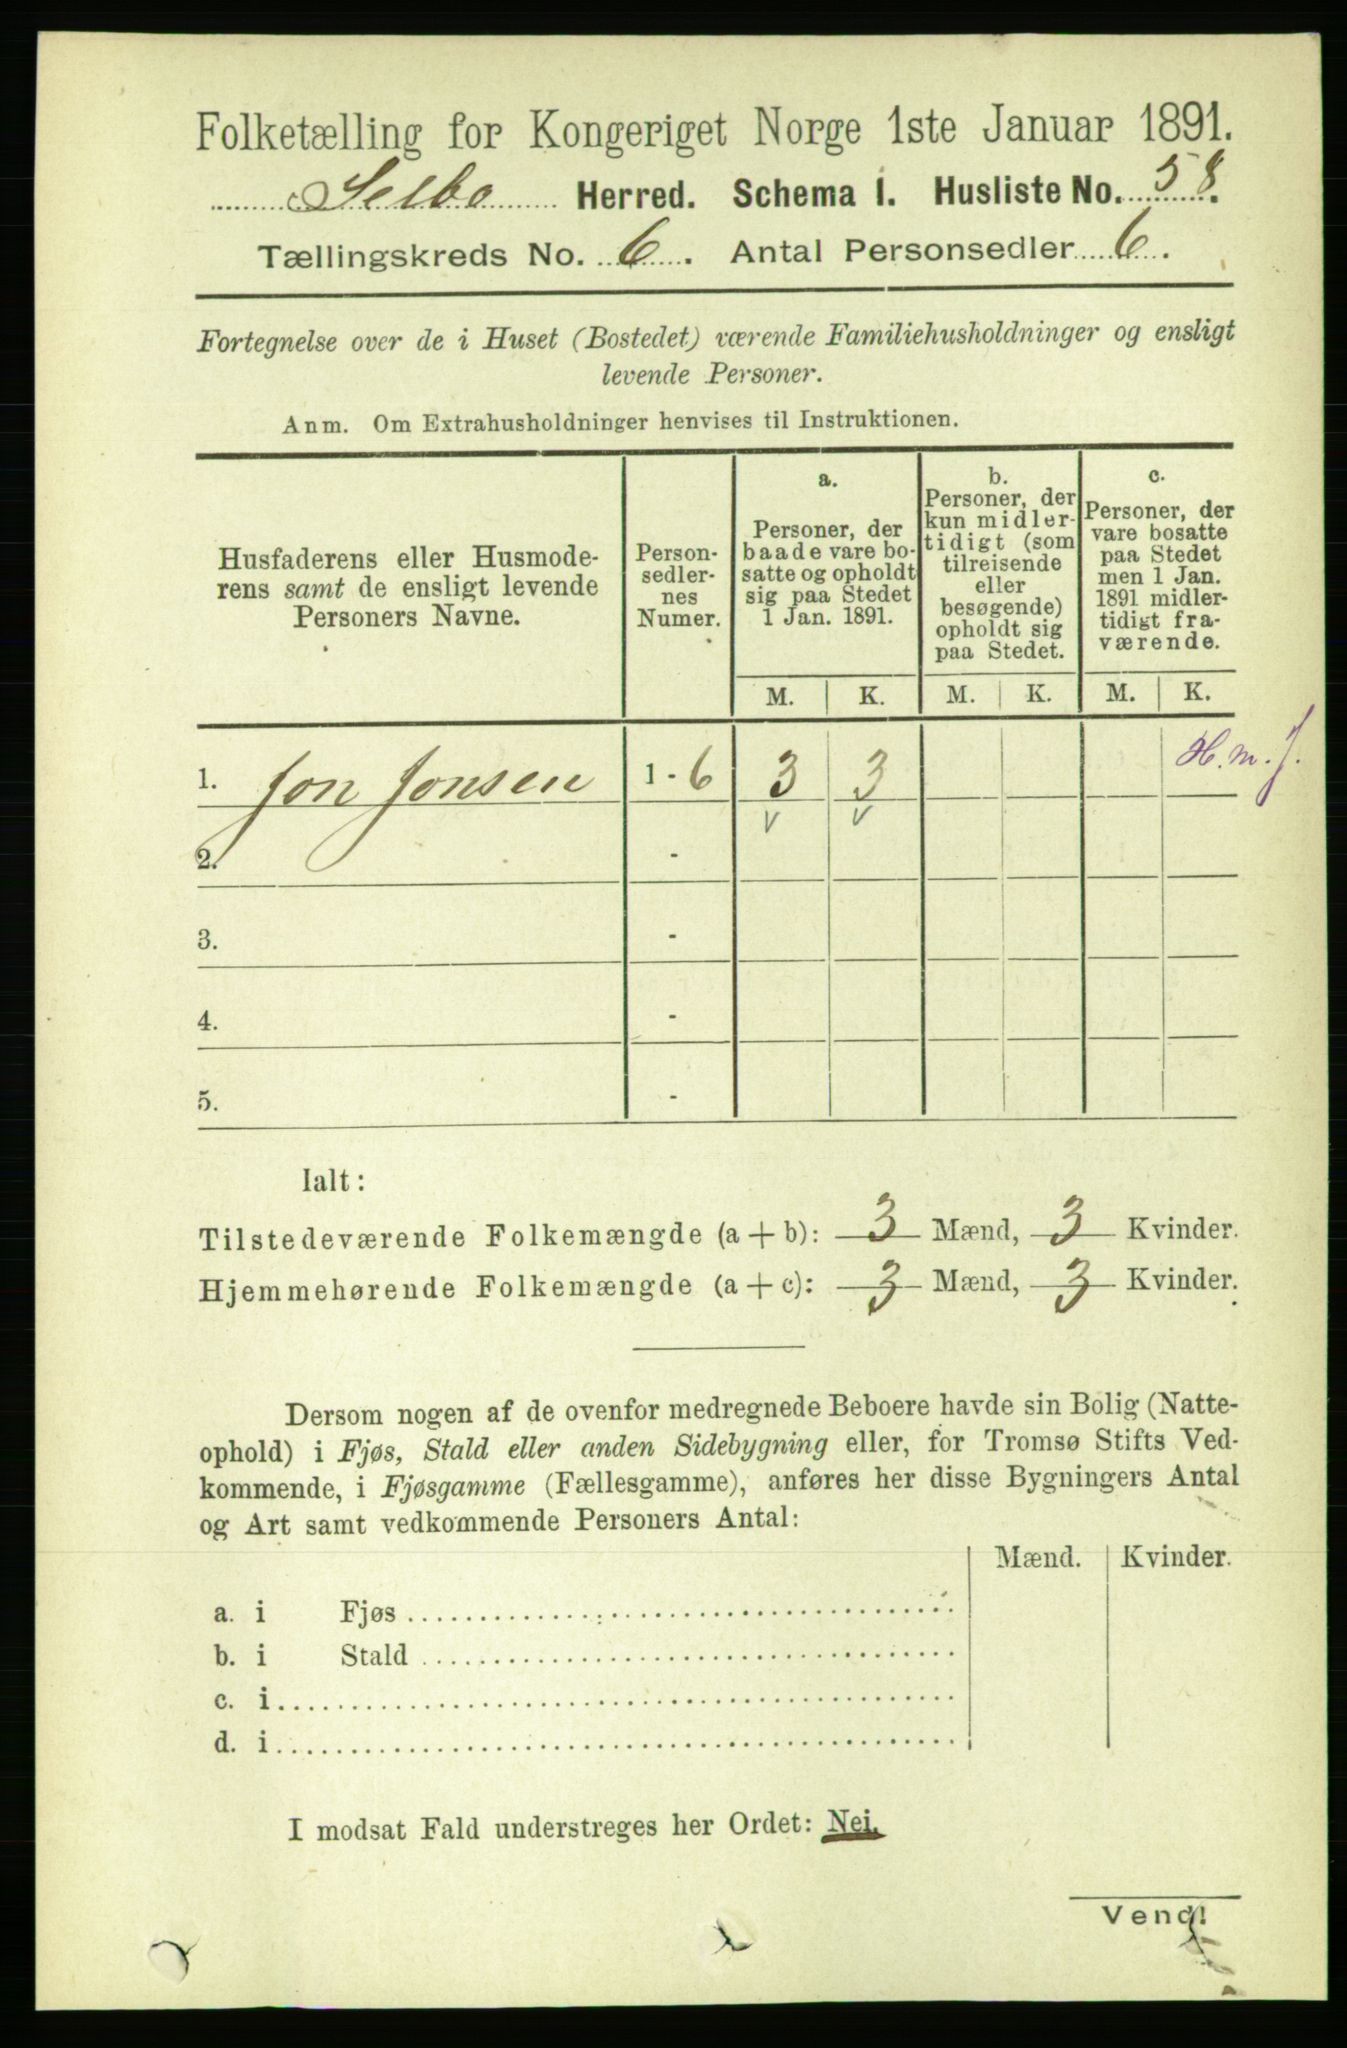 Folketælling for Kongeriget Norge 1ste Januar 1891.
Selbo Herred. Schema I. Husliste No. 58.
Tællingskreds No. 6. Antal Personsedler 6.
Fortegnelse over de i Huset (Bostedet) værende Familiehusholdninger og ensligt
levende Personer.
Anm. Om Extrahusholdninger henvises til Instruktionen.
Husfaderens eller Husmode-
rens samt de ensligt levende
Personers Navne.
Person-
sedler-
nes
Numer.
a.
Personer, der
baade vare bo-
satte og opholdt
sig paa Stedet
1 Jan. 1891.
b.
Personer, der
kun midler-
tidigt (som
tilreisende
eller
besøgende)
opholdt sig
paa Stedet.
c.
Personer, der
vare bosatte
paa Stedet
men 1 Jan.
1891 midler-
tidigt fra-
værende.
M. K. M. K. M. K.
1. Jon Jonsen 1 - 6 3 3 H. m. J.
v v
2. -
3. -
4. -
5. -
Ialt:
Tilstedeværende Folkemængde (a + b): 3 Mænd, 3 Kvinder.
Hjemmehørende Folkemængde (a + c): 3 Mænd, 3 Kvinder.
Dersom nogen af de ovenfor medregnede Beboere havde sin Bolig (Natte-
ophold) i Fjøs, Stald eller anden Sidebygning eller, for Tromsø Stifts Ved-
kommende, i Fjøsgamme (Fællesgamme), anføres her disse Bygningers Antal
og Art samt vedkommende Personers Antal:
Mænd. Kvinder.
a. i Fjøs
b. i Stald
c. i
d. i
I modsat Fald understreges her Ordet: Nei.
Vend!